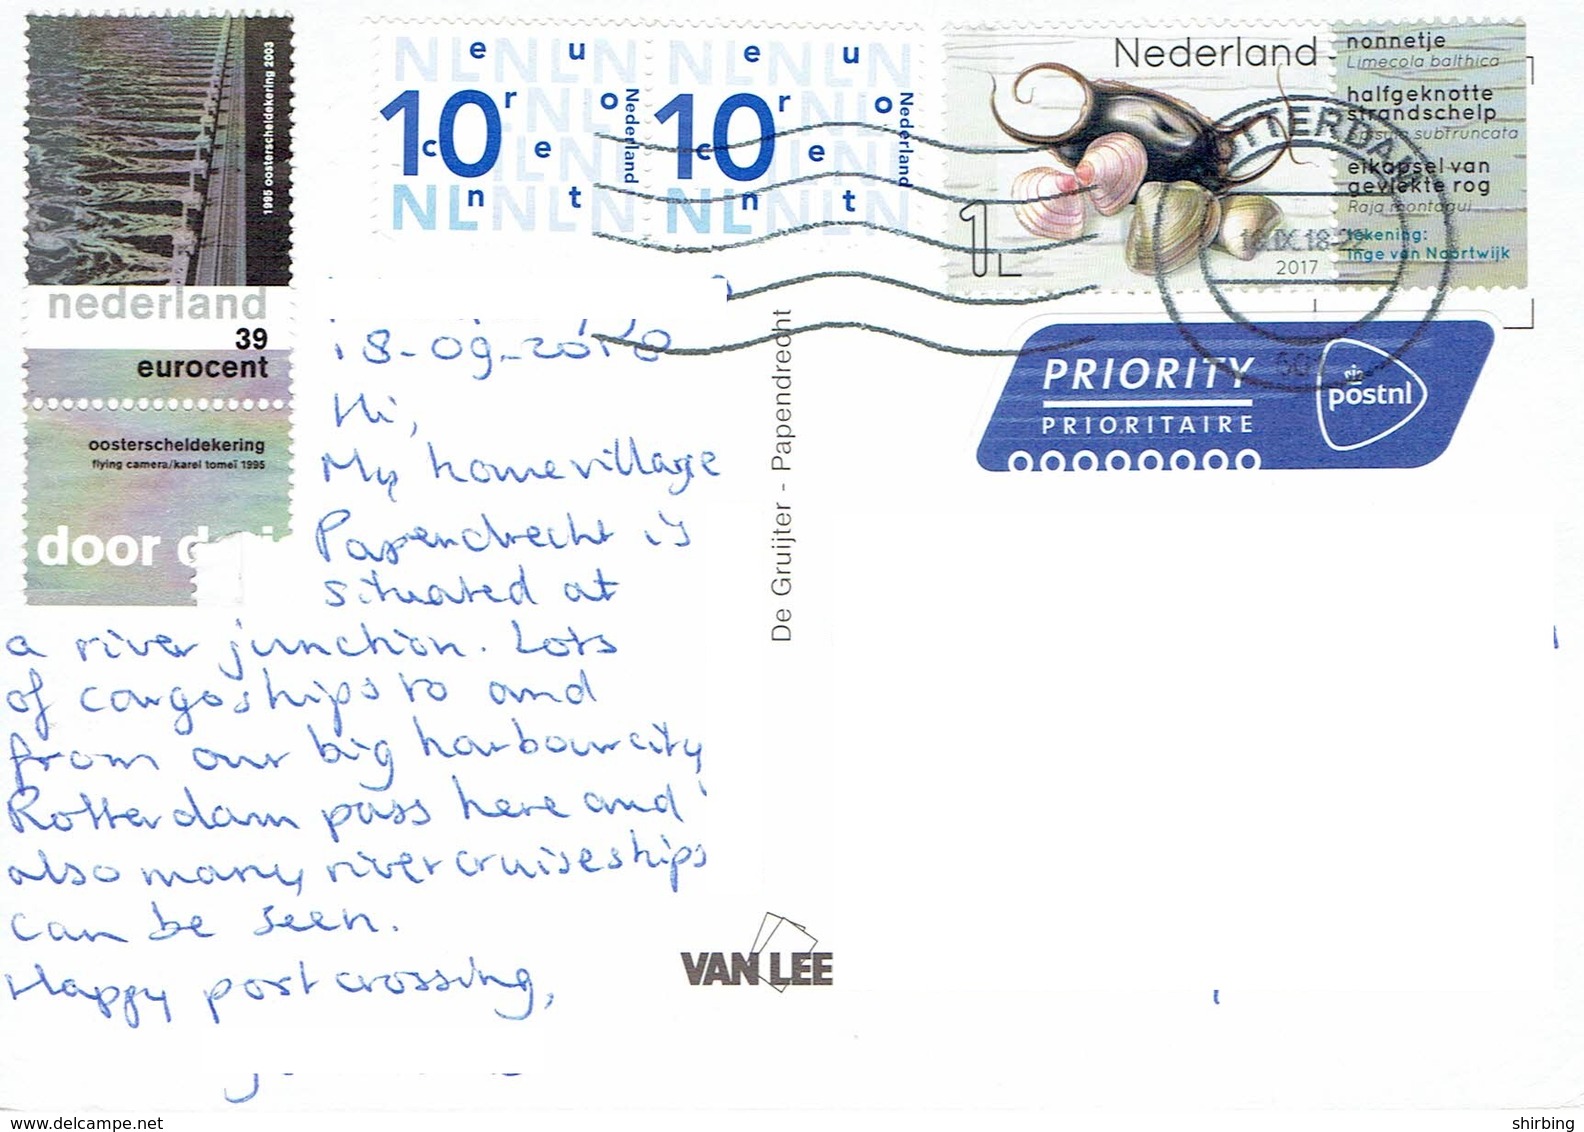 1995 oosterscheldekering 2003
nederland
39
eurocent
oosterscheldekering
flying camera/karel tomeï 1995
door
NLNLN
euro
10
cent
Nederland
NLNLN
euro
10
cent
Nederland
Nederland
1
2017
nonnetje
Limecola balthica
halfgeknotte
strandschelp
Spisula subtruncata
eikapsel van
gevlekte rog
Raja montagui
tekening:
Inge van Noortwijk
ROTTERDAM
PRIORITY
PRIORITAIRE
postnl
18-09-2018
Hi,
My homevillage
Papendrecht is
situated at
a river junction. Lots
of cargoships to and
from our big harbourcity
Rotterdam pass here and
also many rivercruiseships
can be seen.
Happy postcrossing,
De Gruijter - Papendrecht
VAN LEE
www.delcampe.net
shirbing